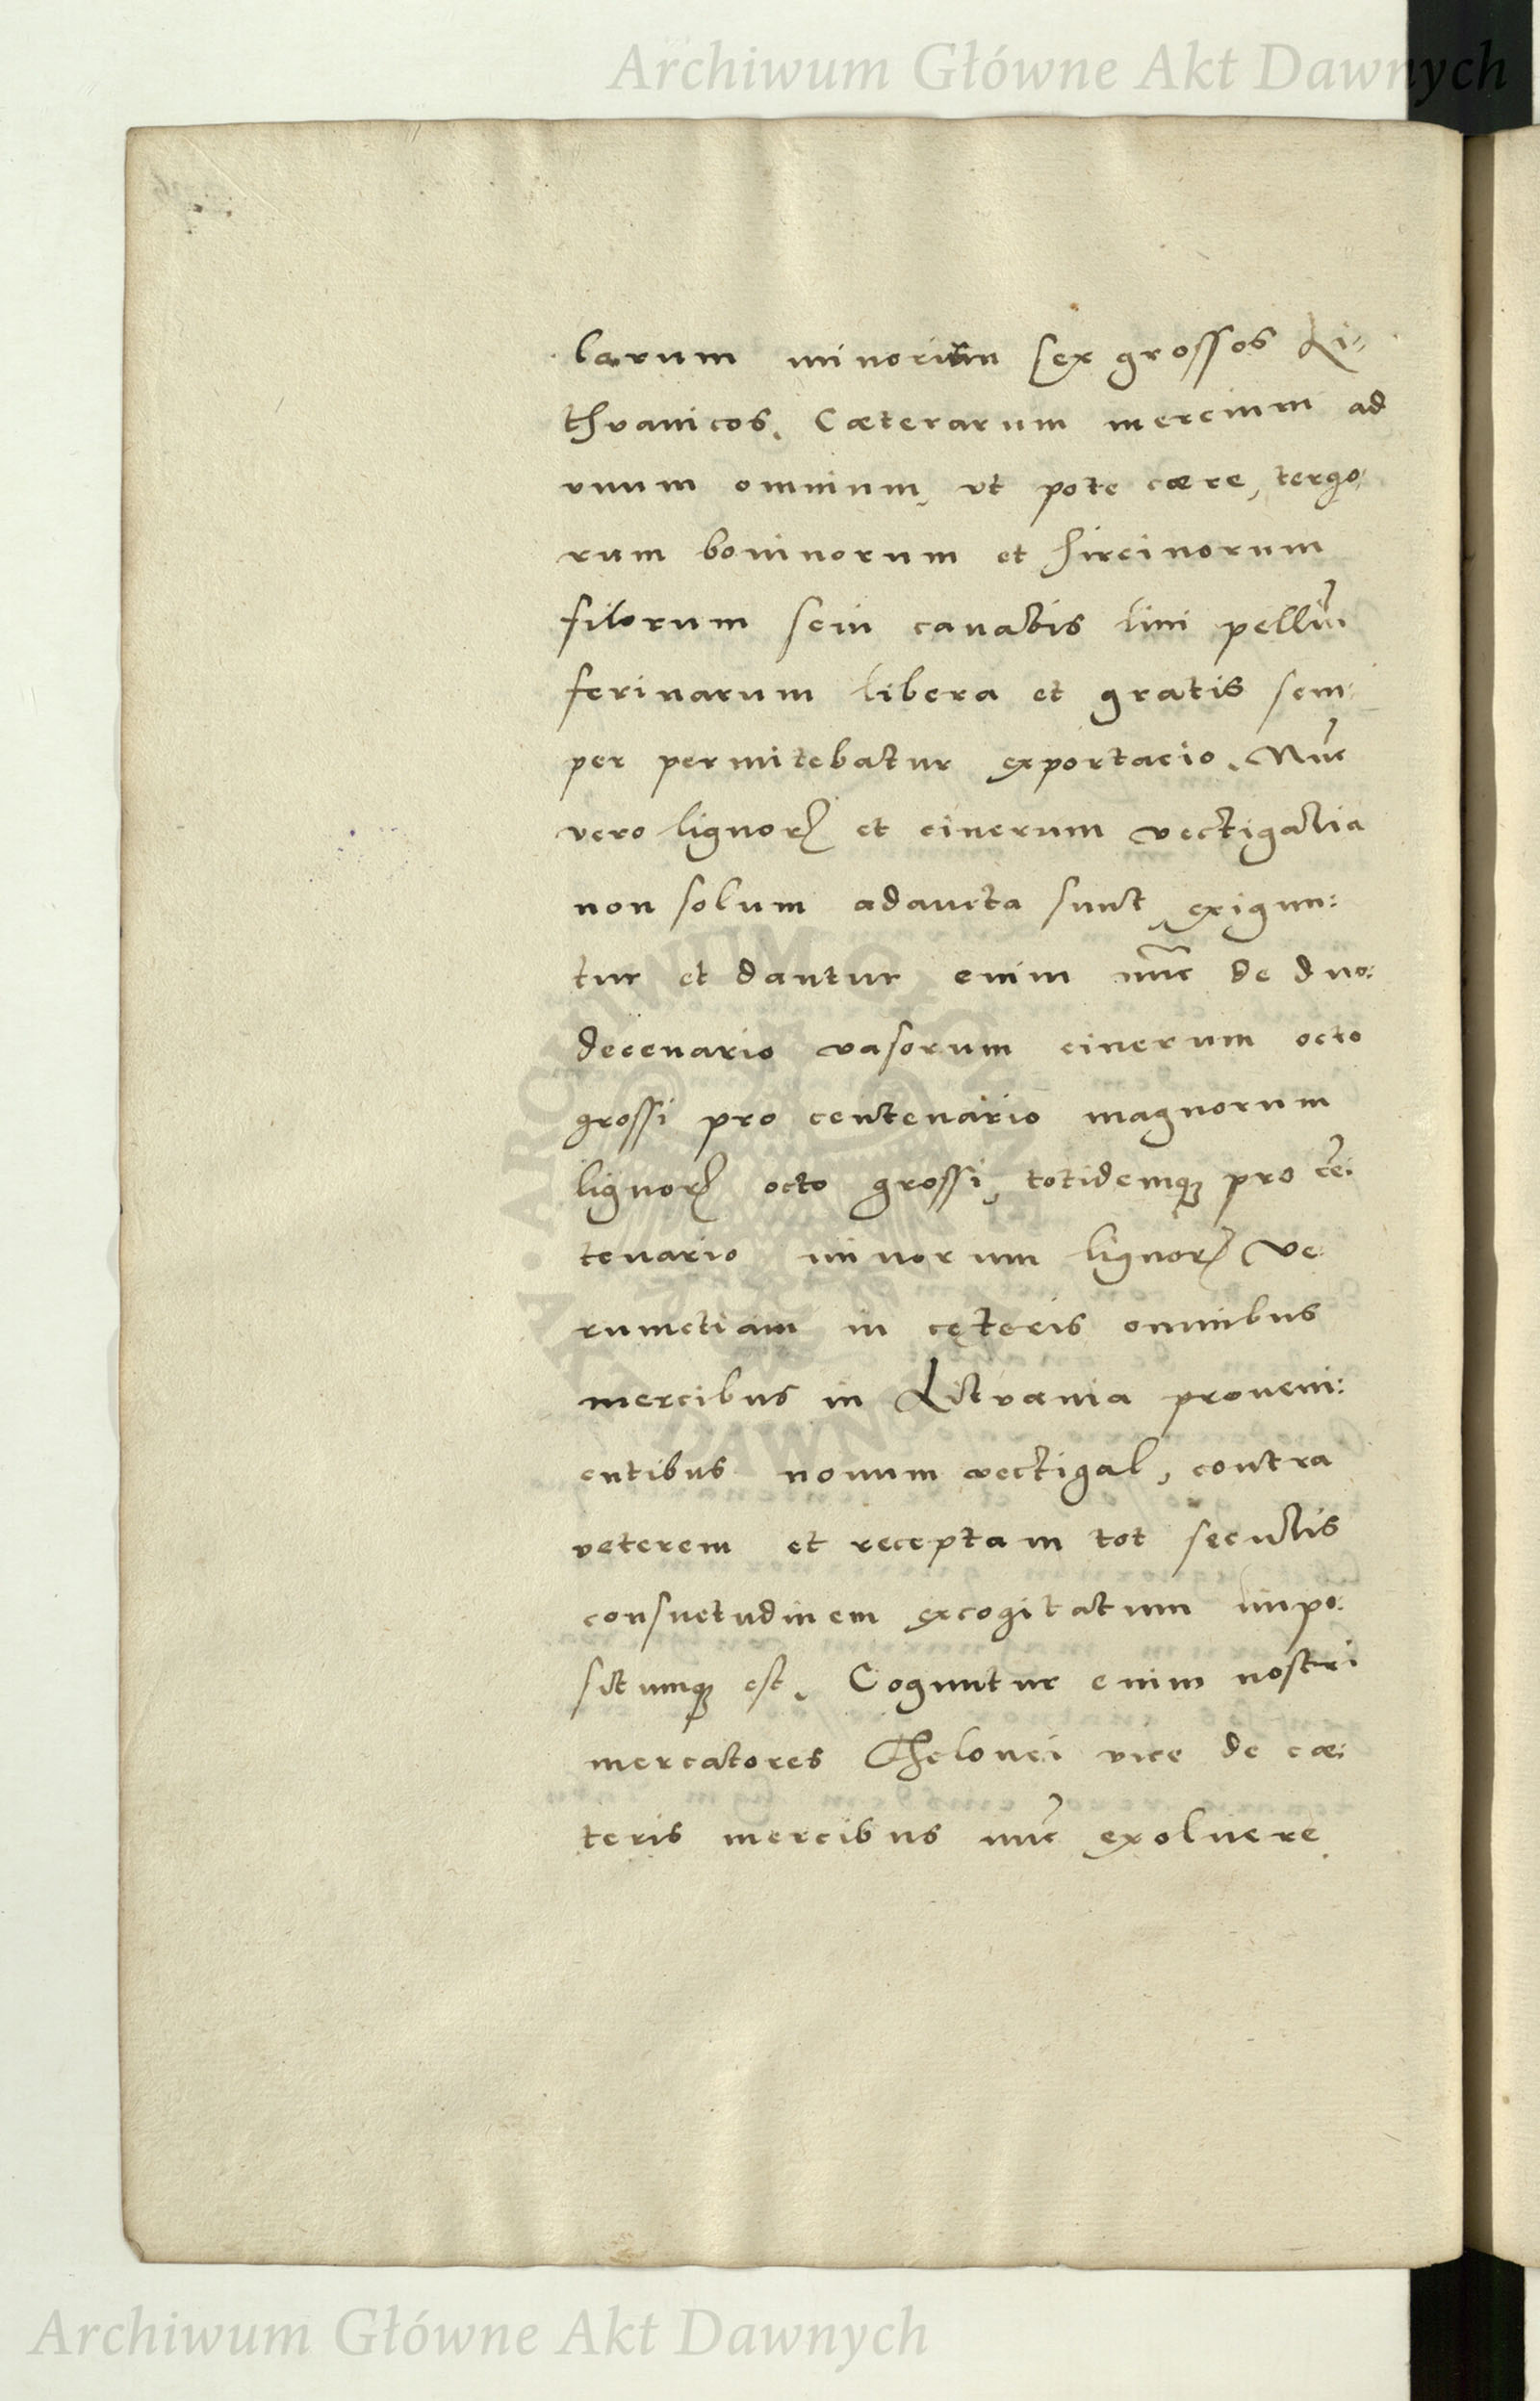 Archiwum Główne Akt Dawnych
larum minorum sex grossos Li-
thvanicos. Cæterarum mercium ad
vnum omnium, vt pote cære, tergo:
rum bouinorum et hircinorum
filorum seui canabis lini pelliū
ferinarum libera et gratis sem:
per permitebatur exportacio. Nūc
vero lignorꝝ et cinerum vectigalia
non solum adaucta sunt, exigun:
tur et dantur enim nūc de duo:
decenario vasorum cinerum octo
grossi pro centenario magnorum
lignorꝝ octo grossi, totidemqꝫ pro cē:
tenario minorum lignorꝝ Ve:
rumetiam in cęteris omnibus
mercibus in Litvania proueni:
entibus nouum vectigal, contra
veterem et receptam tot seculis
consuetudinem excogitatum impo:
situmqꝫ est. Coguntur enim nostri
mercatores Thelonei vice de cæ:
teris mercibus nūc exoluere
Archiwum Główne Akt Dawnych